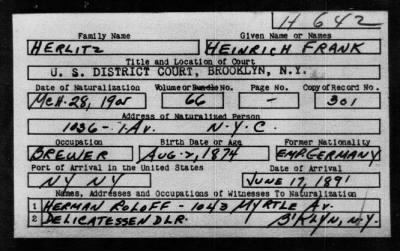 H 642
Family Name Given Name or Names
HERLITZ HEINRICH FRANK
Title and Location of Court
U. S. DISTRICT COURT, BROOKLYN, N.Y.
Date of Naturalization Volume or Bundle No. Page No. Copy of Record No.
MCH. 28, 66 - 301
Address of Naturalized Person
1036 - AV. N.Y.C.
Occupation Birth Date or Age Former Nationality
BREWER AUG. 2, 1874 EMP. GERMANY
Port of Arrival in the United States Date of Arrival
NY NY JUNE 17, 1891
Names, Addresses and Occupations of Witnesses To Naturalization
1 HERMAN ROLOFF - 1043 MYRTLE AV.
2 DELICATESSEN DLR. B'KLYN, N.Y.